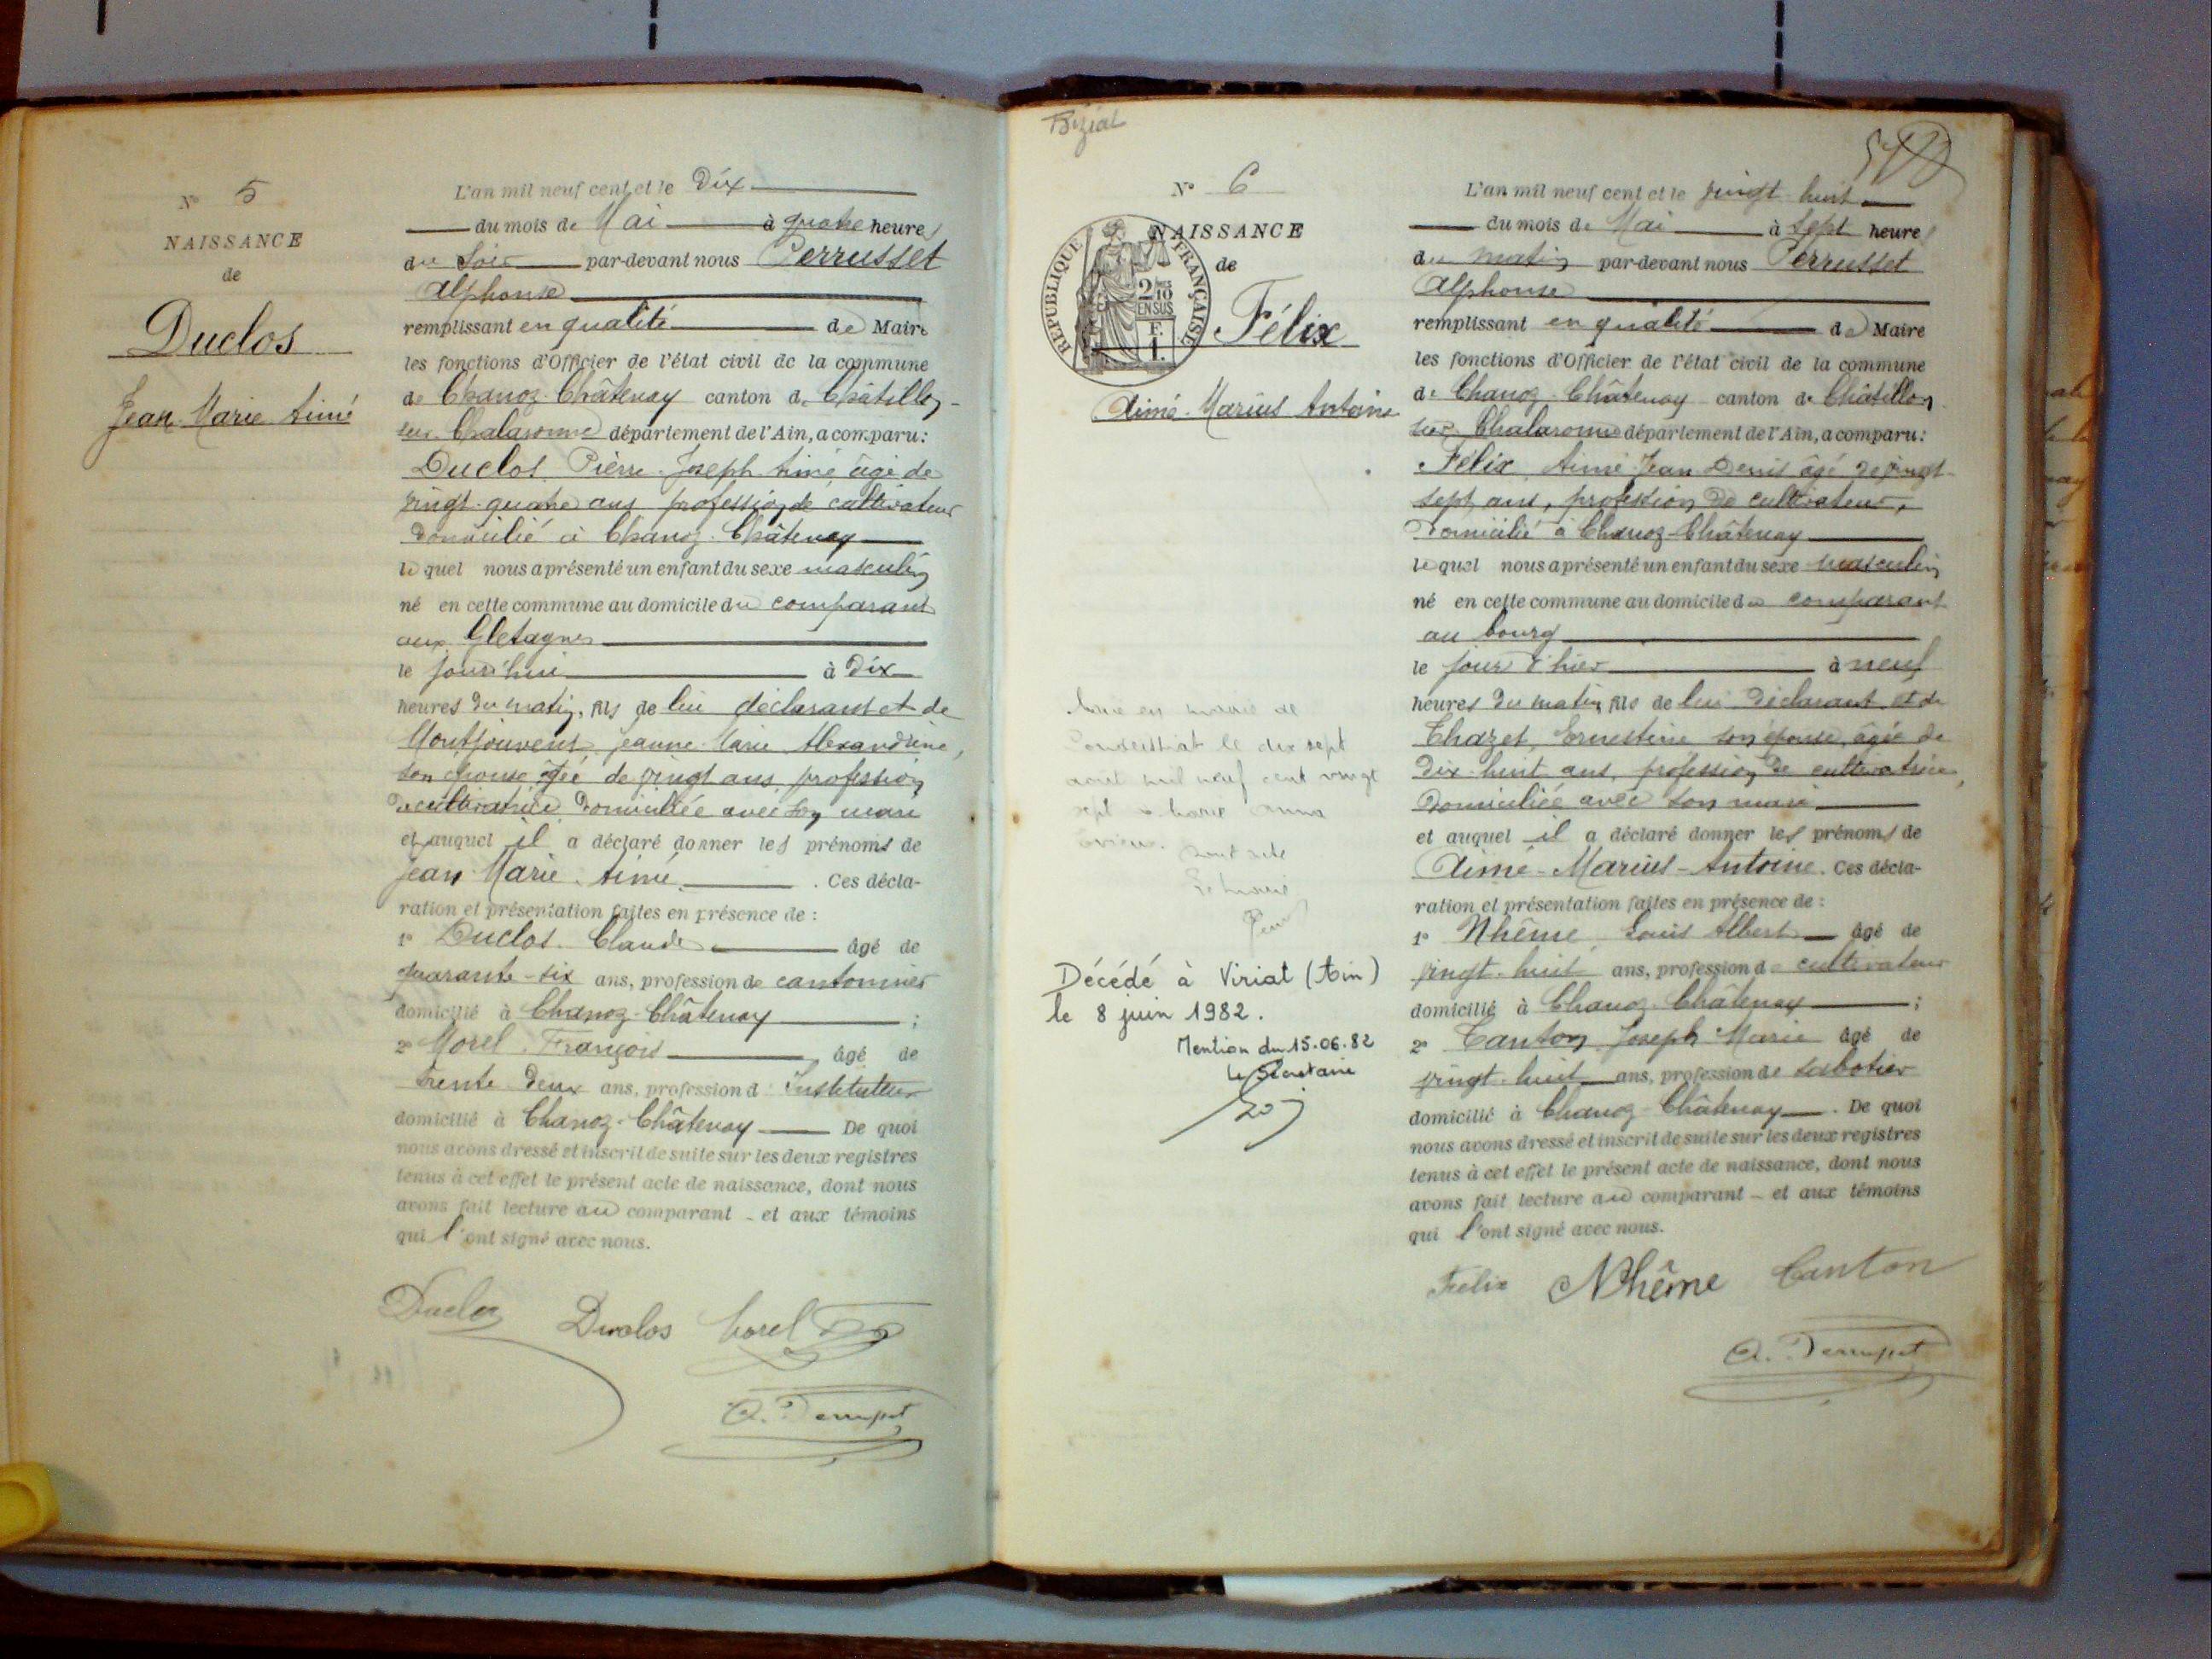 N° 5
NAISSANCE
de
Duclos
Jean Marie Aimé
L'an mil neuf cent et le Dix
du mois de Mai à quatre heures
du soir par-devant nous Perrusset
Alphonse
remplissant en qualité de Maire
les fonctions d'Officier de l'état civil de la commune
de Chanoz-Châtenay canton de Châtillon-
sur Chalaronne département de l'Ain, a comparu :
Duclos Pierre Joseph Aimé âgé de
vingt-quatre ans profession de cultivateur
domicilié à Chanoz-Châtenay
lequel nous a présenté un enfant du sexe masculin
né en cette commune au domicile du comparant
aux Gletagnes
le jourd'hui à Dix
heures du matin, fils de lui déclarant et de
Montjouvent Jeanne Marie Alexandrine,
son épouse âgée de vingt ans, profession
de cultivatrice domiciliée avec son mari
et auquel il a déclaré donner les prénoms de
Jean Marie Aimé. Ces décla-
ration et présentation faites en présence de :
1° Duclos Claude âgé de
quarante-six ans, profession de cantonnier
domicilié à Chanoz-Châtenay ;
2° Morel François âgé de
trente deux ans, profession d'Instituteur
domicilié à Chanoz-Châtenay De quoi
nous avons dressé et inscrit de suite sur les deux registres
tenus à cet effet le présent acte de naissance, dont nous
avons fait lecture au comparant - et aux témoins
qui l'ont signé avec nous.
Duclos Duclos Morel
A. Perrusset
Biziat
N° 6
NAISSANCE
de
RÉPUBLIQUE FRANÇAISE
2/10
EN SUS
F.
1.
Félix
Aimé Marius Antoine
L'an mil neuf cent et le vingt-huit
du mois de Mai à sept heures
du matin par-devant nous Perrusset
Alphonse
remplissant en qualité de Maire
les fonctions d'Officier de l'état civil de la commune
de Chanoz-Châtenay canton de Châtillon
sur Chalaronne département de l'Ain, a comparu :
Félix Aimé Jean Denis âgé de vingt-
sept ans, profession de cultivateur,
domicilié à Chanoz-Châtenay
lequel nous a présenté un enfant du sexe masculin
né en cette commune au domicile du comparant
au bourg
le jour d'hier à neuf
heures du matin fils de lui déclarant et de
Chazet Ernestine son épouse, âgée de
dix-huit ans, profession de cultivatrice,
domiciliée avec son mari
et auquel il a déclaré donner les prénoms de
Aimé-Marius-Antoine. Ces décla-
ration et présentation faites en présence de :
1° Nhême Louis Albert âgé de
vingt-huit ans, profession de cultivateur
domicilié à Chanoz-Châtenay ;
2° Canton Joseph Marie âgé de
vingt-huit ans, profession de sabotier
domicilié à Chanoz-Châtenay. De quoi
nous avons dressé et inscrit de suite sur les deux registres
tenus à cet effet le présent acte de naissance, dont nous
avons fait lecture au comparant - et aux témoins
qui l'ont signé avec nous.
Félix Nhême Canton
A. Perrusset
mairie de
le dix sept
août mil neuf cent vingt
sept
Le maire
Décédé à Viriat (Ain)
le 8 juin 1982.
Mention du 15.06.82
Le Secrétaire